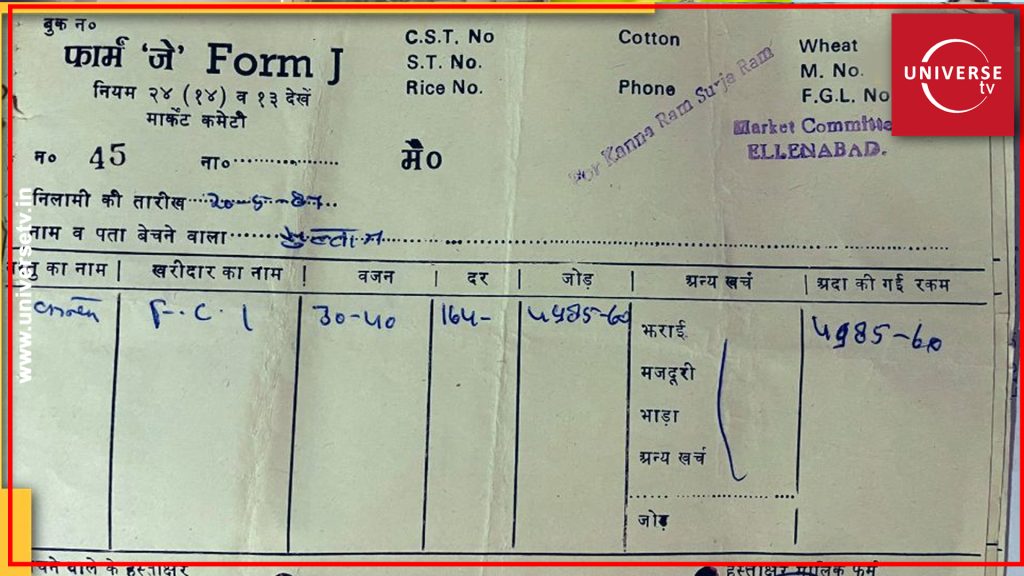 बुक न०
फार्म 'जे' Form J
नियम २४ (१४) व १३ देखें
मार्केट कमेटी
C.S.T. No
S.T. No.
Rice No.
Cotton
Phone
Wheat
M. No.
F.G.L. No
UNIVERSE
tv
For Kanna Ram Surja Ram
Market Committe
ELLENABAD.
न० 45 ना०.................. मै०
निलामी की तारीख
नाम व पता बेचने वाला
का नाम | खरीदार का नाम | वजन | दर | जोड़ | अन्य खर्च | अदा की गई रकम
F.C.I 30-40 164- 4985-60 झराई 4985-60
मजदूरी
भाड़ा
अन्य खर्च
जोड़
वाले के हस्ताक्षर
हस्ताक्षर मालिक फर्म
www.universetv.in